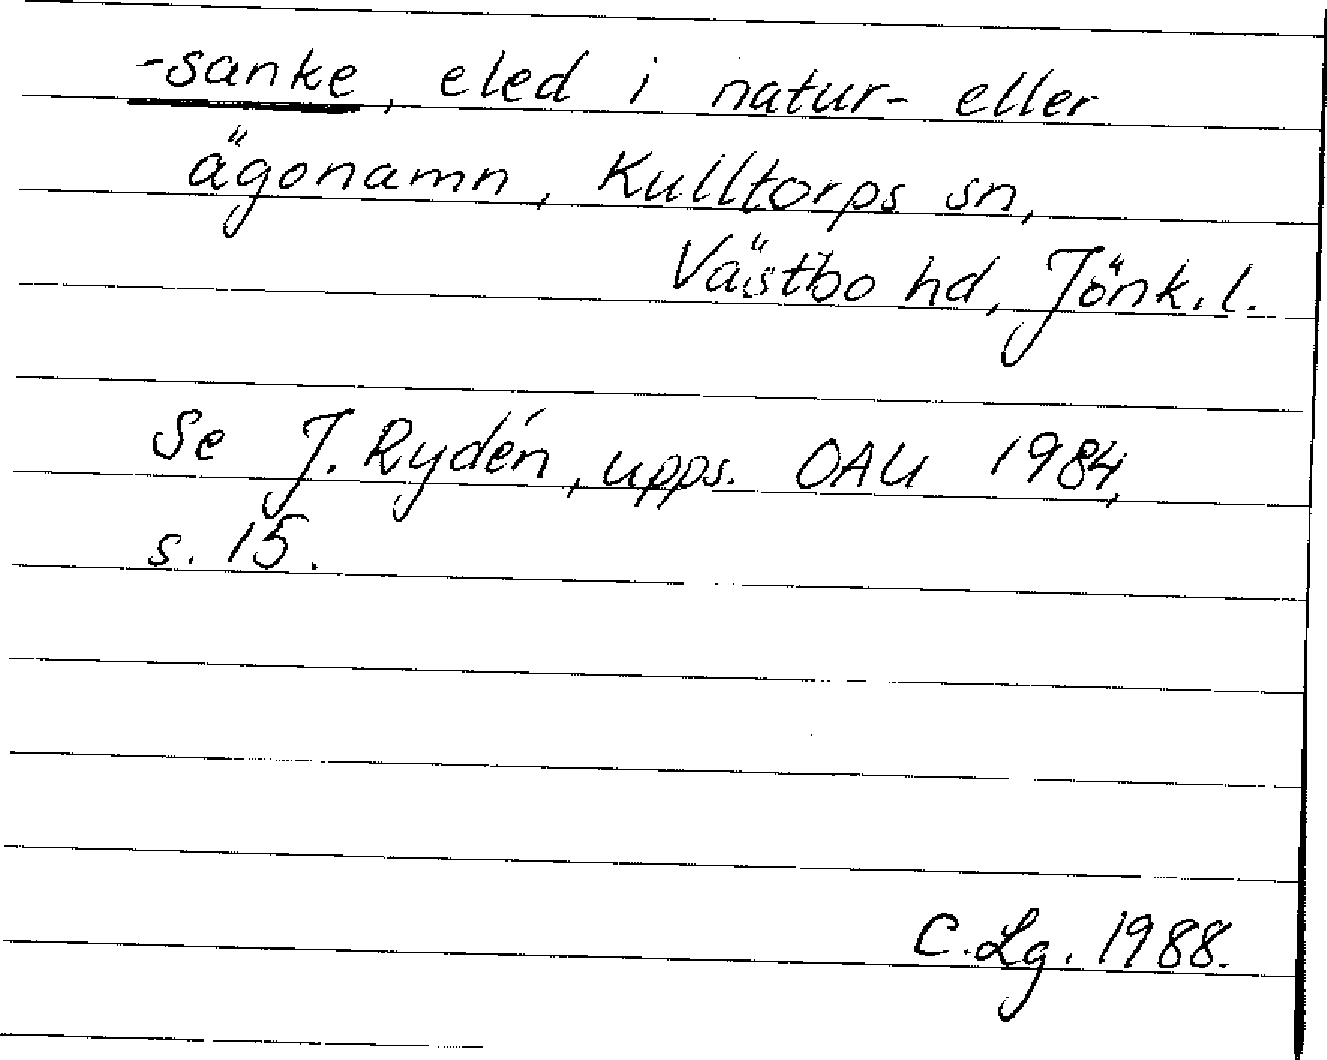 -sanke, eled i natur- eller
ägonamn, Kulltorps sn,
Västbo hd, Jönk. l.
Se J. Rydén, upps. OAU 1984,
s. 15.
C. Lg. 1988.